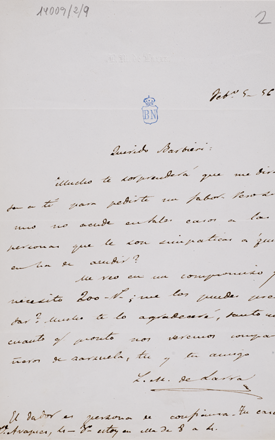 14009/2/9
2
BN
Feb.º 5-56
Querido Barbieri:
Mucho te sorprenderá que me diri
ja a ti para pedirte un favor. Pero si
uno no acude en tales casos a las
personas que le son simpaticas a quien
ha de acudir?
Me veo en un compromiso y
necesito 200 ¿me los puedes pres
tar? Mucho te lo agradeceré, tanto
cuanto pronto nos veremos compa
ñeros de zarzuela, tu y tu amigo
L. M. de Larra
El dador es persona de confianza.